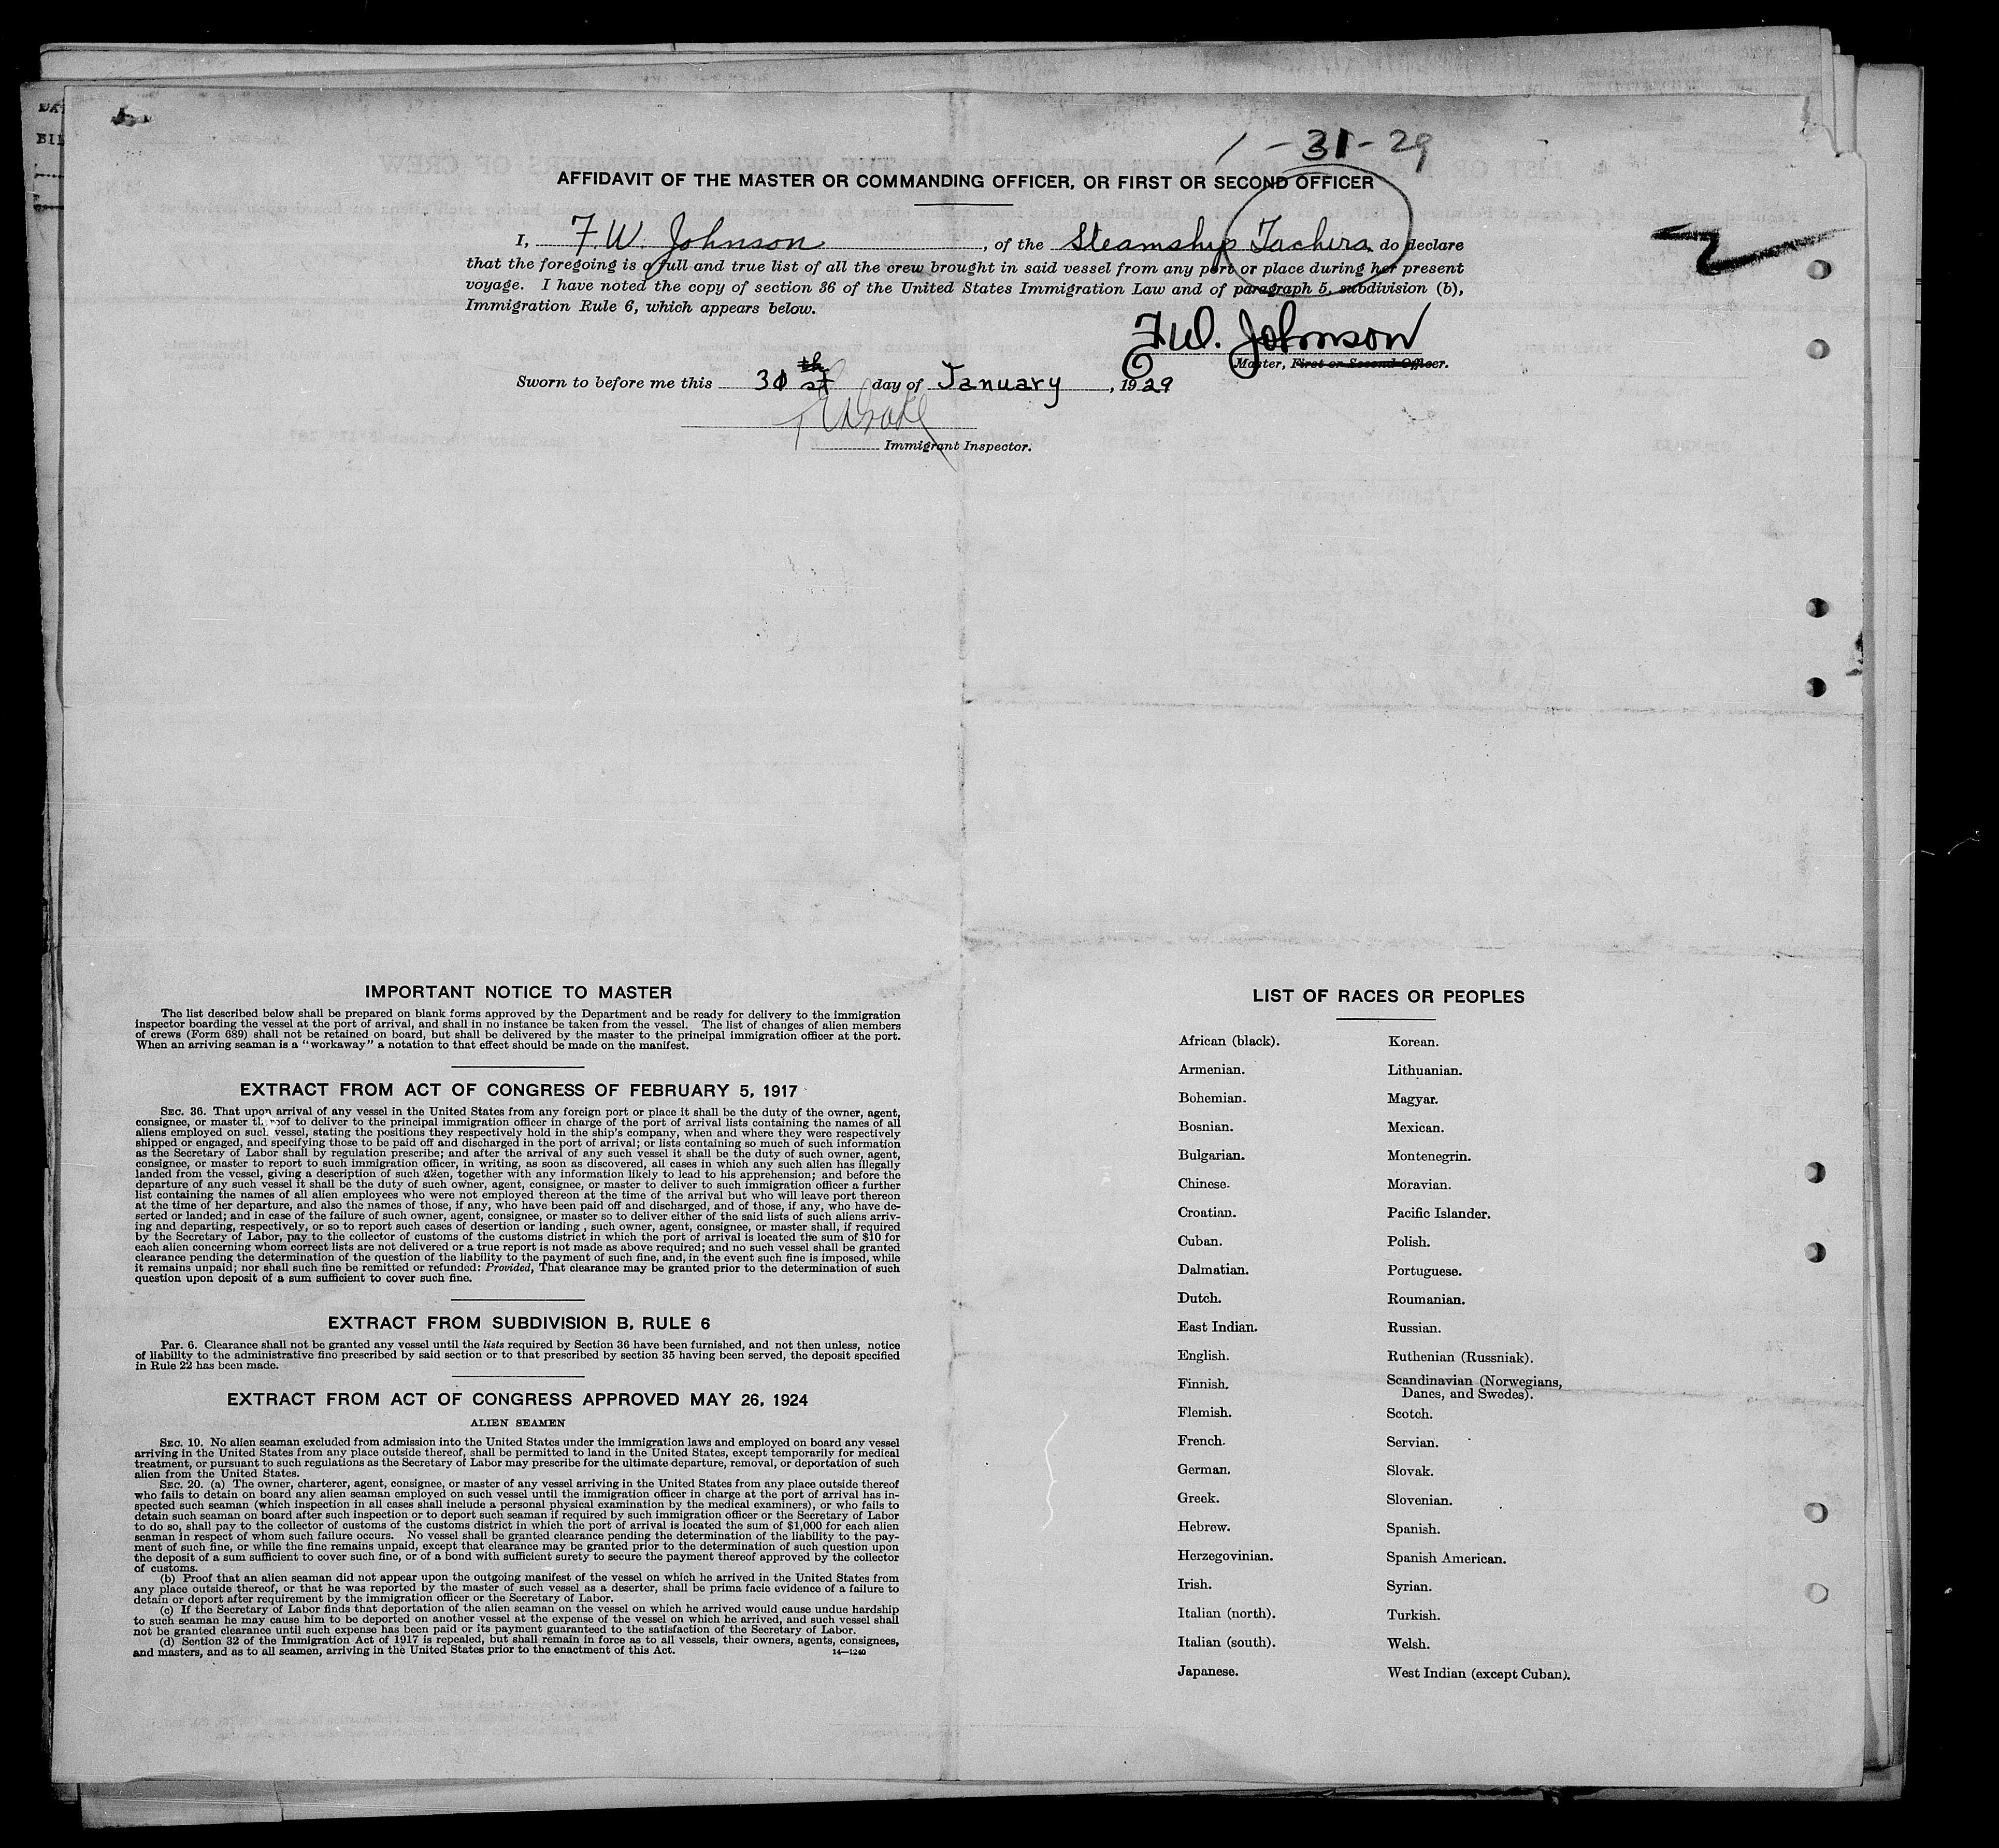 1-31-29
AFFIDAVIT OF THE MASTER OR COMMANDING OFFICER, OR FIRST OR SECOND OFFICER
I, F.W. Johnson, of the Steamship Tachira do declare
that the foregoing is a full and true list of all the crew brought in said vessel from any port or place during her present
voyage. I have noted the copy of section 36 of the United States Immigration Law and of paragraph 5, subdivision (b),
Immigration Rule 6, which appears below.
F.W. Johnson
Master, First or Second Officer.
Sworn to before me this 31 th st day of January, 1929
Immigrant Inspector.
IMPORTANT NOTICE TO MASTER
The list described below shall be prepared on blank forms approved by the Department and be ready for delivery to the immigration
inspector boarding the vessel at the port of arrival, and shall in no instance be taken from the vessel. The list of changes of alien members
of crews (Form 689) shall not be retained on board, but shall be delivered by the master to the principal immigration officer at the port.
When an arriving seaman is a "workaway" a notation to that effect should be made on the manifest.
EXTRACT FROM ACT OF CONGRESS OF FEBRUARY 5, 1917
SEC. 36. That upon arrival of any vessel in the United States from any foreign port or place it shall be the duty of the owner, agent,
consignee, or master thereof to deliver to the principal immigration officer in charge of the port of arrival lists containing the names of all
aliens employed on such vessel, stating the positions they respectively hold in the ship's company, when and where they were respectively
shipped or engaged, and specifying those to be paid off and discharged in the port of arrival; or lists containing so much of such information
as the Secretary of Labor shall by regulation prescribe; and after the arrival of any such vessel it shall be the duty of such owner, agent,
consignee, or master to report to such immigration officer, in writing, as soon as discovered, all cases in which any such alien has illegally
landed from the vessel, giving a description of such alien, together with any information likely to lead to his apprehension; and before the
departure of any such vessel it shall be the duty of such owner, agent, consignee, or master to deliver to such immigration officer a further
list containing the names of all alien employees who were not employed thereon at the time of the arrival but who will leave port thereon
at the time of her departure, and also the names of those, if any, who have been paid off and discharged, and of those, if any, who have de-
serted or landed; and in case of the failure of such owner, agent, consignee, or master so to deliver either of the said lists of such aliens arriv-
ing and departing, respectively, or so to report such cases of desertion or landing, such owner, agent, consignee, or master shall, if required
by the Secretary of Labor, pay to the collector of customs of the customs district in which the port of arrival is located the sum of $10 for
each alien concerning whom correct lists are not delivered or a true report is not made as above required; and no such vessel shall be granted
clearance pending the determination of the question of the liability to the payment of such fine, and, in the event such fine is imposed, while
it remains unpaid; nor shall such fine be remitted or refunded: Provided, That clearance may be granted prior to the determination of such
question upon deposit of a sum sufficient to cover such fine.
EXTRACT FROM SUBDIVISION B, RULE 6
Par. 6. Clearance shall not be granted any vessel until the lists required by Section 36 have been furnished, and not then unless, notice
of liability to the administrative fine prescribed by said section or to that prescribed by section 35 having been served, the deposit specified
in Rule 22 has been made.
EXTRACT FROM ACT OF CONGRESS APPROVED MAY 26, 1924
ALIEN SEAMEN
SEC. 19. No alien seaman excluded from admission into the United States under the immigration laws and employed on board any vessel
arriving in the United States from any place outside thereof, shall be permitted to land in the United States, except temporarily for medical
treatment, or pursuant to such regulations as the Secretary of Labor may prescribe for the ultimate departure, removal, or deportation of such
alien from the United States.
SEC. 20. (a) The owner, charterer, agent, consignee, or master of any vessel arriving in the United States from any place outside thereof
who fails to detain on board any alien seaman employed on such vessel until the immigration officer in charge at the port of arrival has in-
spected such seaman (which inspection in all cases shall include a personal physical examination by the medical examiners), or who fails to
detain such seaman on board after such inspection or to deport such seaman if required by such immigration officer or the Secretary of Labor
to do so, shall pay to the collector of customs of the customs district in which the port of arrival is located the sum of $1,000 for each alien
seaman in respect of whom such failure occurs. No vessel shall be granted clearance pending the determination of the liability to the pay-
ment of such fine, or while the fine remains unpaid, except that clearance may be granted prior to the determination of such question upon
the deposit of a sum sufficient to cover such fine, or of a bond with sufficient surety to secure the payment thereof approved by the collector
of customs.
(b) Proof that an alien seaman did not appear upon the outgoing manifest of the vessel on which he arrived in the United States from
any place outside thereof, or that he was reported by the master of such vessel as a deserter, shall be prima facie evidence of a failure to
detain or deport after requirement by the immigration officer or the Secretary of Labor.
(c) If the Secretary of Labor finds that deportation of the alien seaman on the vessel on which he arrived would cause undue hardship
to such seaman he may cause him to be deported on another vessel at the expense of the vessel on which he arrived, and such vessel shall
not be granted clearance until such expense has been paid or its payment guaranteed to the satisfaction of the Secretary of Labor.
(d) Section 32 of the Immigration Act of 1917 is repealed, but shall remain in force as to all vessels, their owners, agents, consignees,
and masters, and as to all seamen, arriving in the United States prior to the enactment of this Act. 14—1240
LIST OF RACES OR PEOPLES
African (black).
Armenian.
Bohemian.
Bosnian.
Bulgarian.
Chinese.
Croatian.
Cuban.
Dalmatian.
Dutch.
East Indian.
English.
Finnish.
Flemish.
French.
German.
Greek.
Hebrew.
Herzegovinian.
Irish.
Italian (north).
Italian (south).
Japanese.
Korean.
Lithuanian.
Magyar.
Mexican.
Montenegrin.
Moravian.
Pacific Islander.
Polish.
Portuguese.
Roumanian.
Russian.
Ruthenian (Russniak).
Scandinavian (Norwegians,
Danes, and Swedes).
Scotch.
Servian.
Slovak.
Slovenian.
Spanish.
Spanish American.
Syrian.
Turkish.
Welsh.
West Indian (except Cuban).